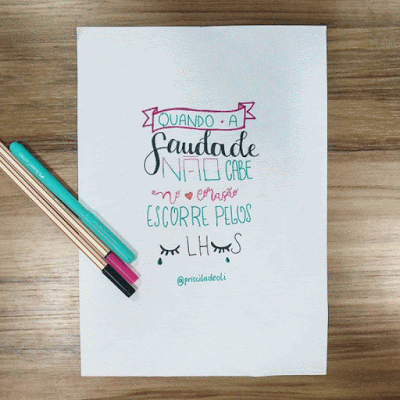 QUANDO · A
Saudade
NÃO CABE
no coração
ESCORRE PELOS
OLHOS
@prisciladeoli